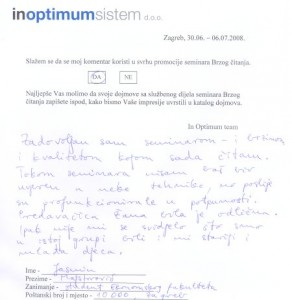 inoptimumsistem d.o.o.
Zagreb, 30.06. - 06.07.2008.
Slažem se da se moj komentar koristi u svrhu promocije seminara Brzog čitanja.
DA NE
Najljepše Vas molimo da svoje dojmove sa službenog dijela seminara Brzog
čitanja zapišete ispod, kako bismo Vaše impresije uvrstili u katalog dojmova.
In Optimum team
Zadovoljan sam seminarom - i brzinom
i kvalitetom kojom sada čitam.
Tokom seminara nisam baš bio
uvjeren u neke tehnike, no poslije
su profunkcionirale u potpunosti.
Predavačica Žana bila je odlična.
Ipak nije mi se svidjelo što smo
u istoj grupi bili i mi stariji i
mlađa djeca.
Ime - Jasmin
Prezime -
Zanimanje - student Ekonomskog fakulteta
Poštanski broj i mjesto - 10 000 Zagreb